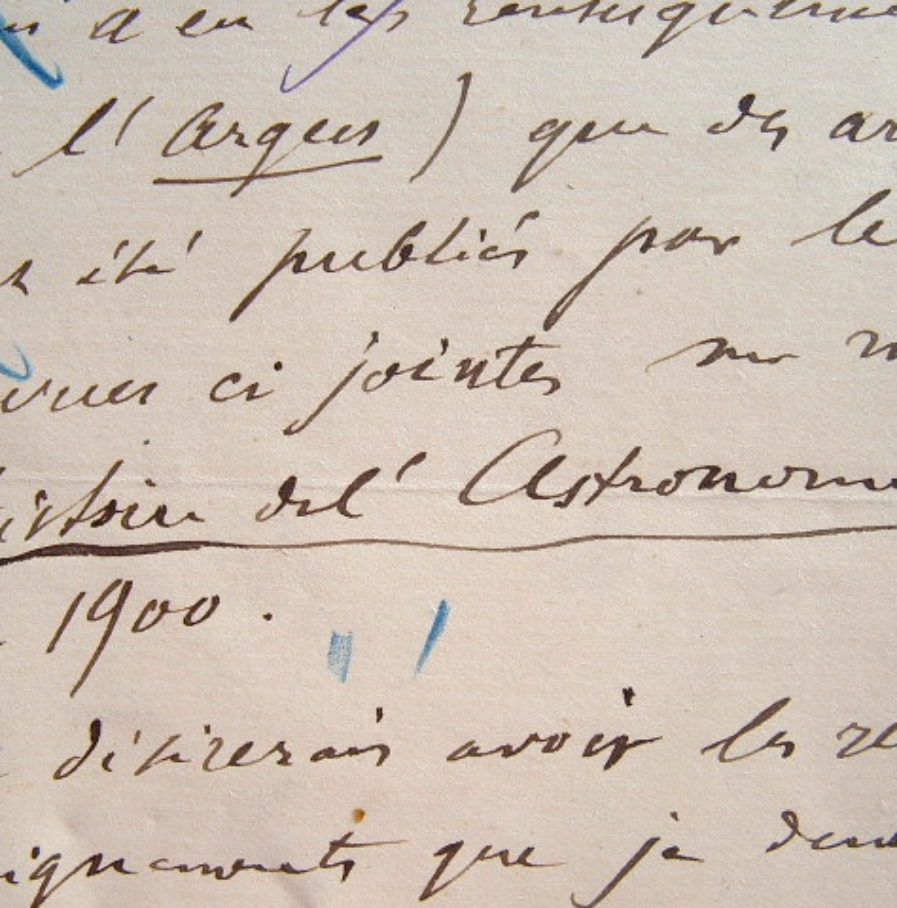 a eu les renseignements
l'Argus) que des ar
été publiés par le
vues ci jointes sur
istoire de l'Astronomi
1900.
désirerais avoir les re
ignements que je dem